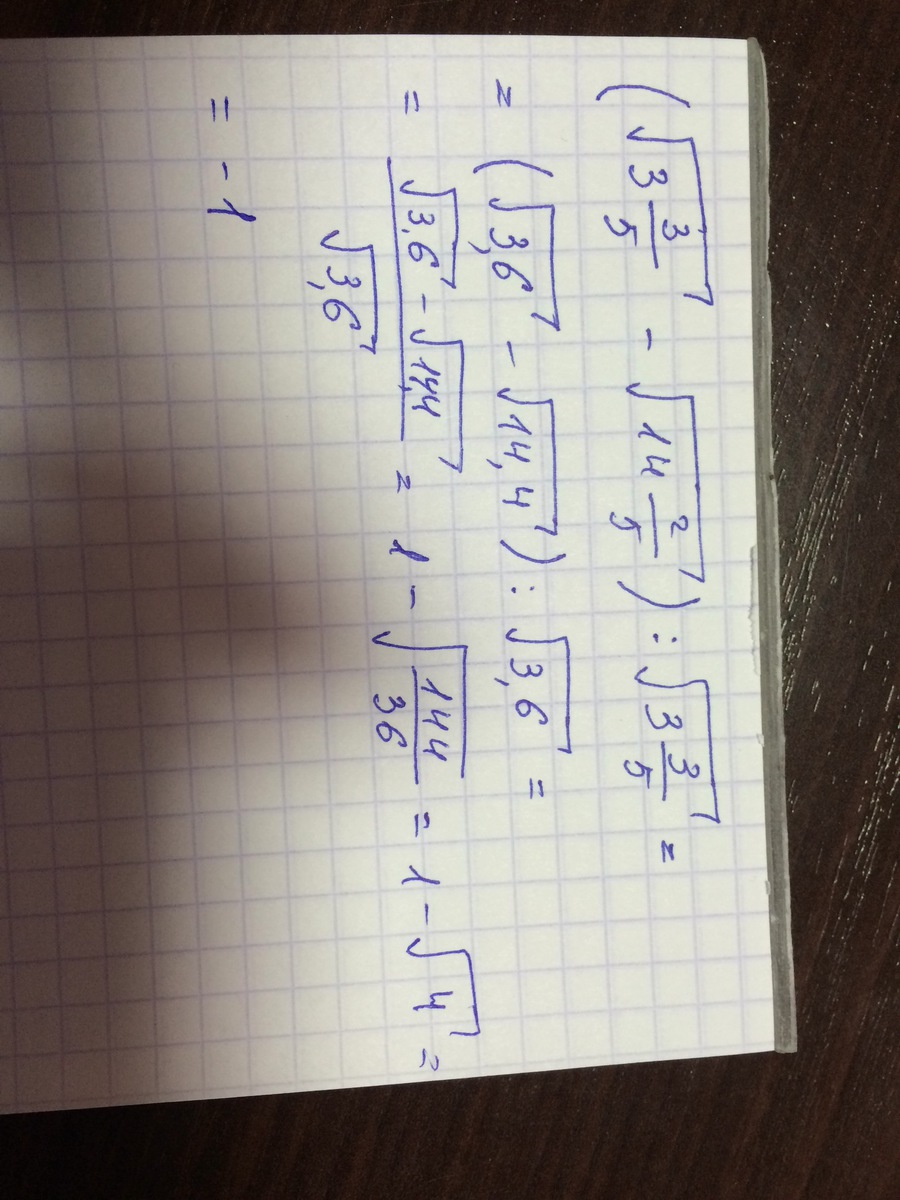 (√3 3/5 - √14 2/5) : √3 3/5 =
= (√3,6 - √14,4) : √3,6 =
= (√3,6 - √14,4)/√3,6 = 1 - √144/36 = 1 - √4 =
= -1